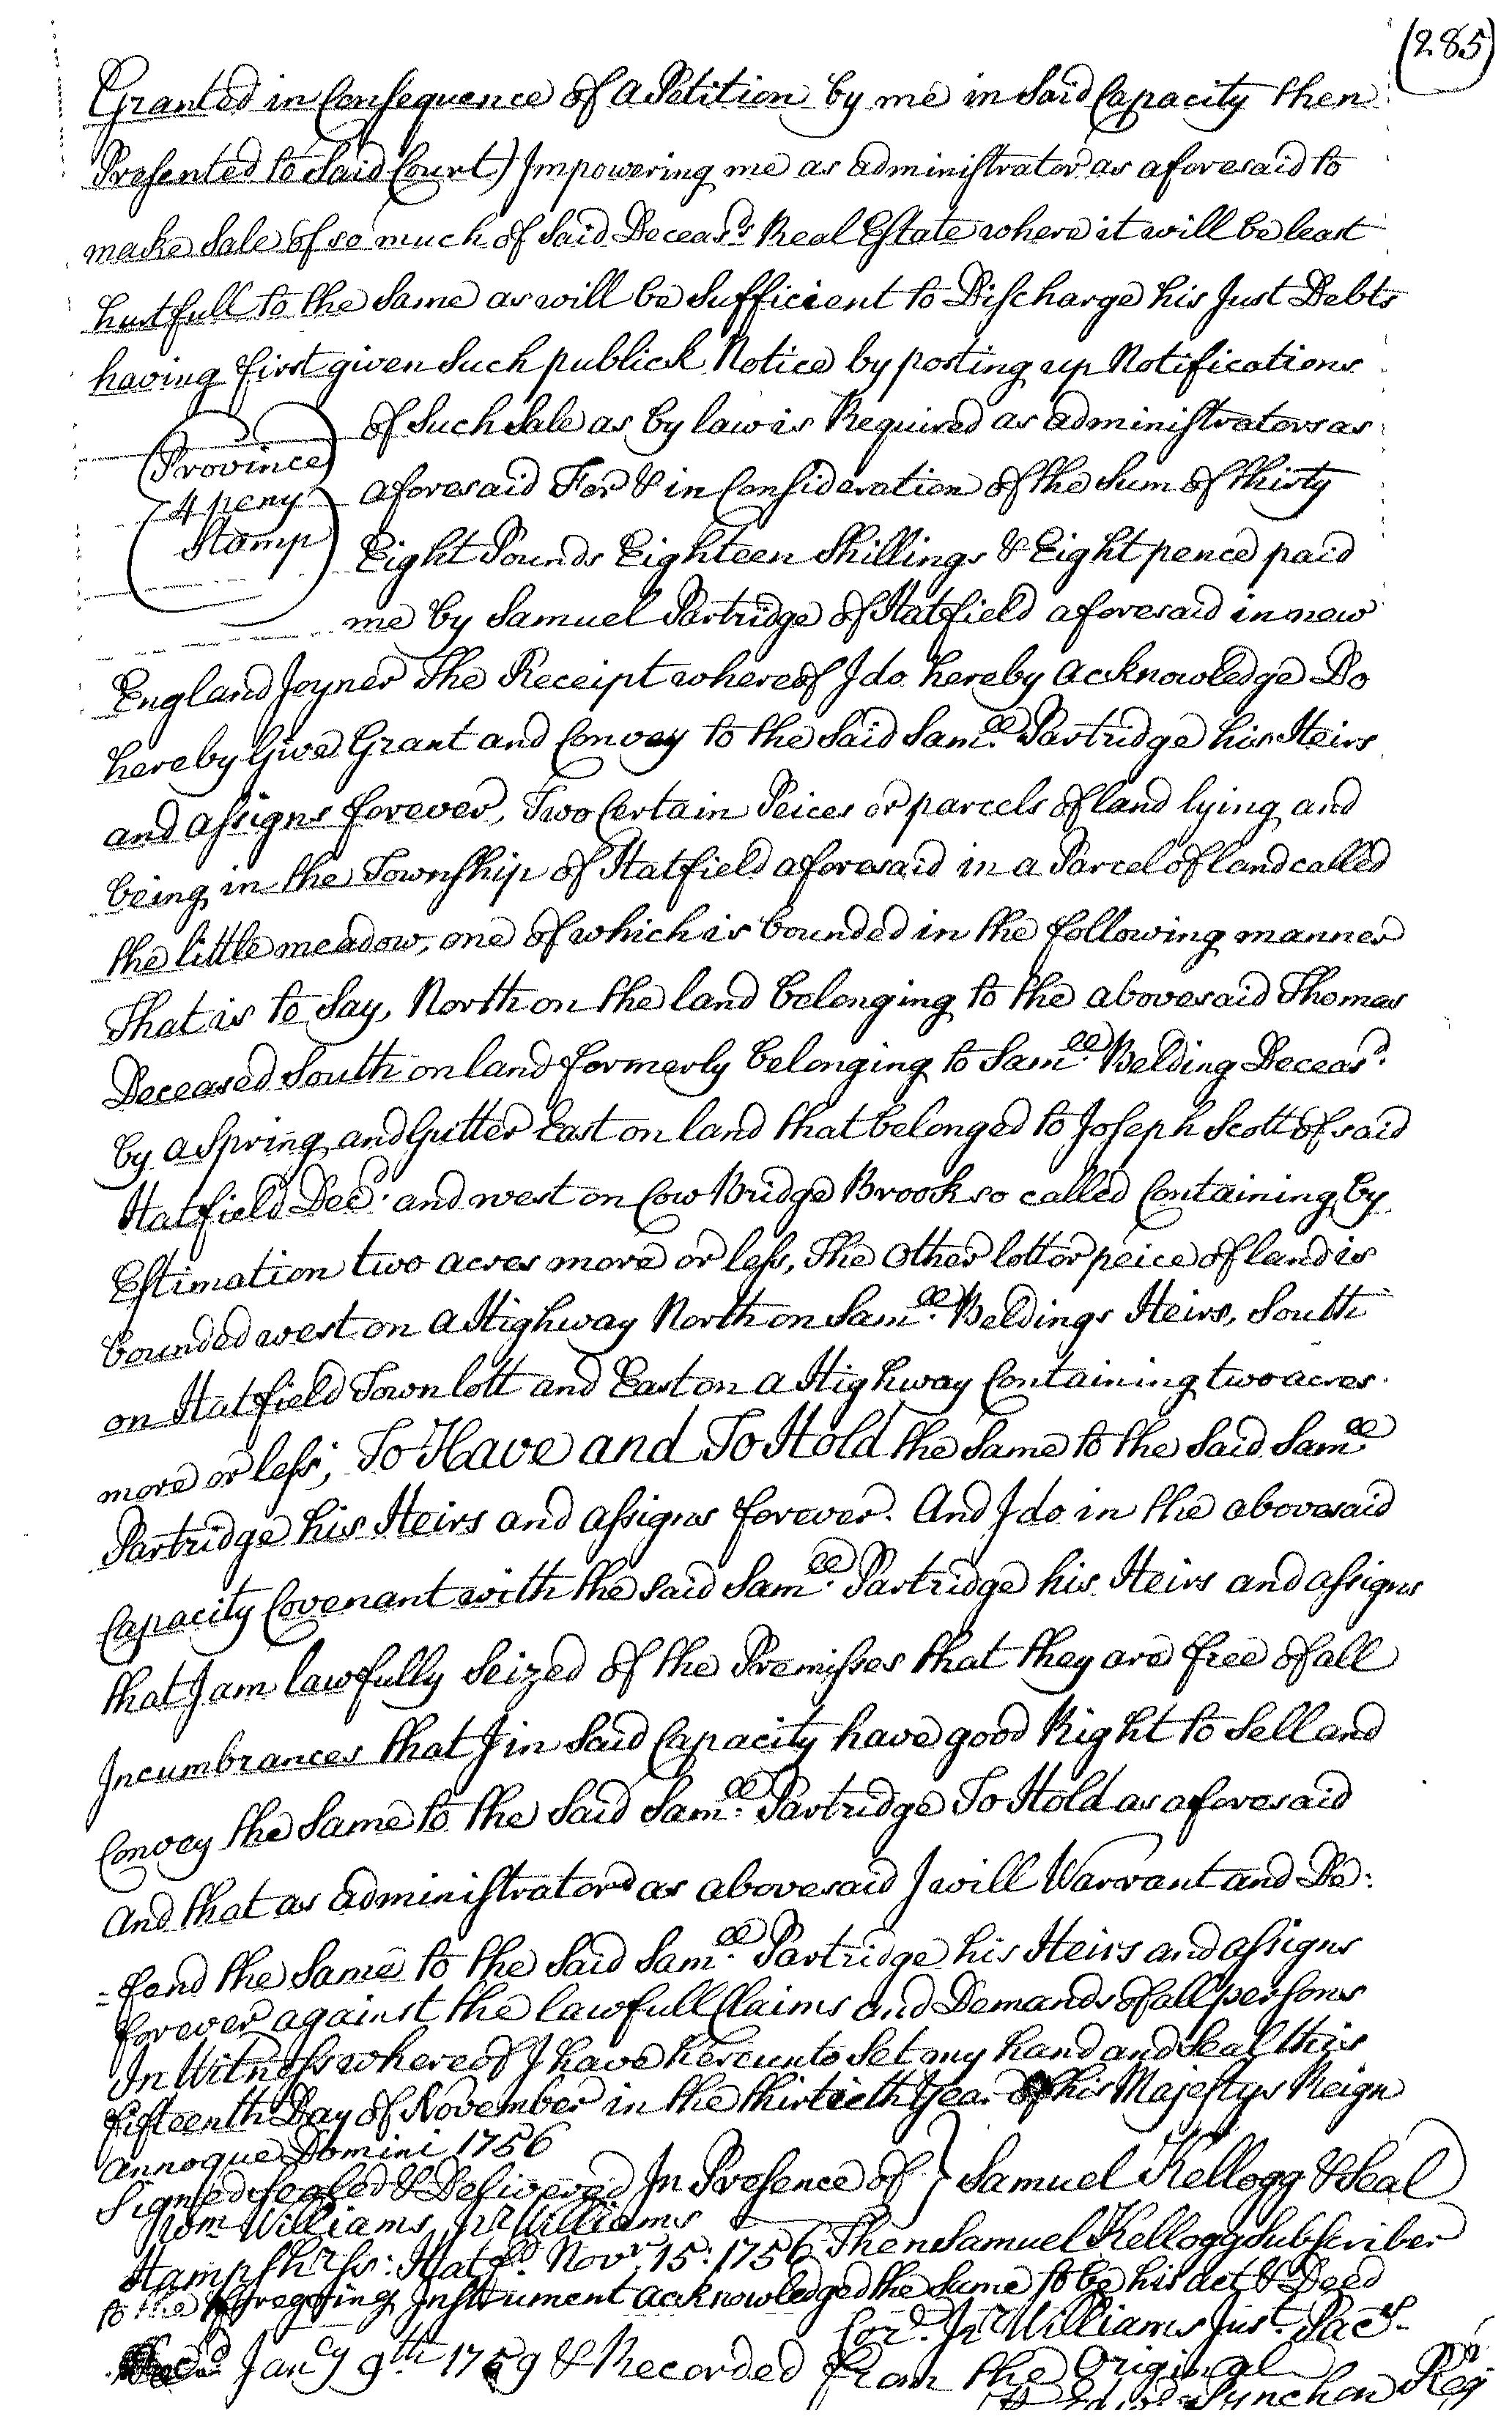 (285)
Granted in Consequence of a Petition by me in Said Capacity then
Presented to Said Court) Impowering me as administrator as aforesaid to
make Sale of so much of Said Deceasds Real Estate where it will be least
hurtfull to the Same as will be Sufficient to Discharge his Just Debts
having first given Such publick Notice by posting up Notifications
of Such Sale as by law is Required as administrators as
Province
4 peny
Stamp
aforesaid For & in Consideration of the Sum of thirty
Eight Pounds Eighteen Shillings & Eight pence paid
me by Samuel Partridge of Hatfield aforesaid in new
England Joyner The Receipt whereof I do hereby acknowledge Do
hereby Give Grant and Convey to the Said Samll. Partridge his Heirs
and assigns forever, Two Certain Peices or parcels of land lying and
being in the Township of Hatfield aforesaid in a Parcel of land called
the little meadow, one of which is bounded in the following manner
That is to Say, North on the land belonging to the abovesaid Thomas
Deceased South on land formerly belonging to Samll. Belding Deceasd.
by a Spring and Gutter East on land that belonged to Joseph Scott of said
Hatfield Decd. and west on Cow Bridge Brook so called Containing by
Estimation two acres more or less, The other lott or peice of land is
bounded west on a Highway North on Samll. Beldings Heirs, South
on Hatfield Town lott and East on a Highway Containing two acres.
more or less; To Have and To Hold the Same to the Said Samll.
Partridge his Heirs and assigns forever. And I do in the abovesaid
Capacity Covenant with the said Samll. Partridge his Heirs and assigns
that I am lawfully Seized of the Premisses that they are free of all
Incumbrances that I in Said Capacity have good Right to Sell and
Convey the Same to the Said Samll. Partridge To Hold as aforesaid
and that as administrator as abovesaid I will Warrant and De:
=fend the Same to the Said Samll. Partridge his Heirs and assigns
forever against the lawfull Claims and Demands of all persons
In Witness whereof I have hereunto Set my hand and Seal this
fifteenth Day of November in the thirtieth Year of his Majestys Reign
annoque Domini 1756
Signed Sealed & Delivered In Presence of } Samuel Kellogg & Seal
Wm Williams Isr Williams
Hampshr ss: Hatfd. Novr. 15: 1756 Then Samuel Kellogg Subscriber
to the foregoing Instrument acknowledged the Same to be his act & Deed
Cord. Isr Williams Just. Pacs.
Recd Jany 9th 1759 & Recorded from the Original
Pynchon Reg